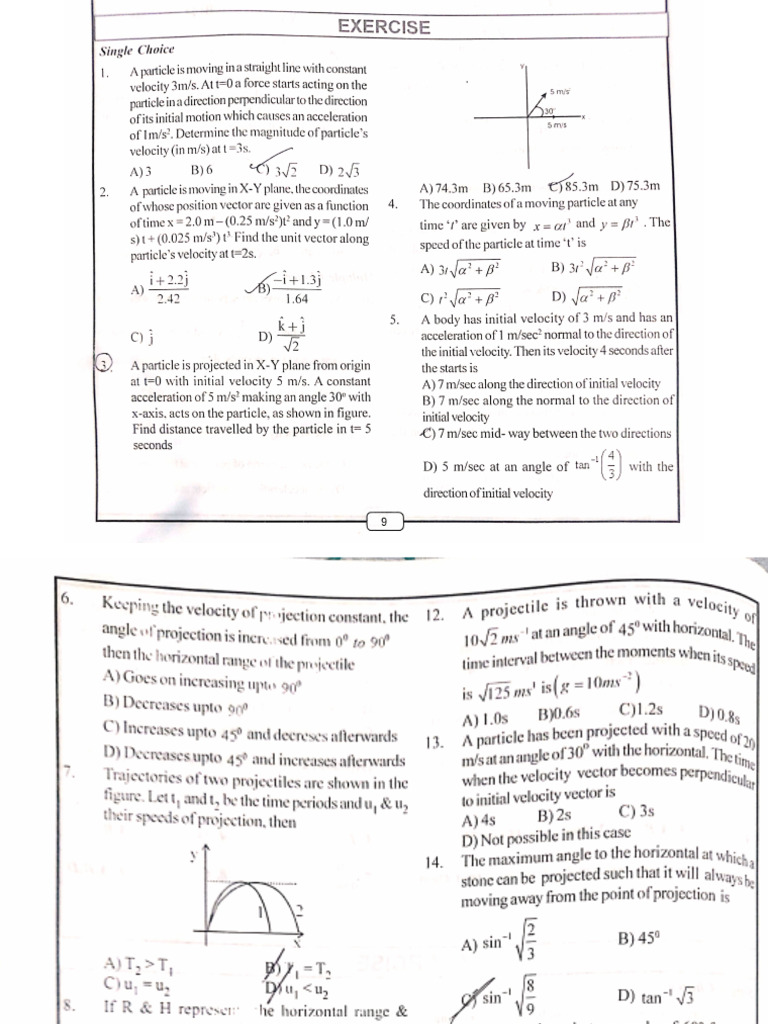 EXERCISE
Single Choice
1. A particle is moving in a straight line with constant
velocity 3m/s. At t=0 a force starts acting on the
particle in a direction perpendicular to the direction
of its initial motion which causes an acceleration
of 1m/s². Determine the magnitude of particle's
velocity (in m/s) at t =3s.
A) 3 B) 6 C) 3√2 D) 2√3
2. A particle is moving in X-Y plane, the coordinates
of whose position vector are given as a function
of time x = 2.0 m – (0.25 m/s²)t² and y = (1.0 m/
s) t + (0.025 m/s³) t³ Find the unit vector along
particle's velocity at t=2s.
A) (î + 2.2ĵ)/2.42 B) (–î + 1.3ĵ)/1.64
C) ĵ D) (k̂ + ĵ)/√2
3. A particle is projected in X-Y plane from origin
at t=0 with initial velocity 5 m/s. A constant
acceleration of 5 m/s² making an angle 30º with
x-axis, acts on the particle, as shown in figure.
Find distance travelled by the particle in t= 5
seconds
y
5 m/s²
30°
x
5 m/s
A) 74.3m B) 65.3m C) 85.3m D) 75.3m
4. The coordinates of a moving particle at any
time 't' are given by x = αt³ and y = βt³ . The
speed of the particle at time 't' is
A) 3t√(α² + β²) B) 3t²√(α² + β²)
C) t²√(α² + β²) D) √(α² + β²)
5. A body has initial velocity of 3 m/s and has an
acceleration of 1 m/sec² normal to the direction of
the initial velocity. Then its velocity 4 seconds after
the starts is
A) 7 m/sec along the direction of initial velocity
B) 7 m/sec along the normal to the direction of
initial velocity
C) 7 m/sec mid- way between the two directions
D) 5 m/sec at an angle of tan⁻¹(4/3) with the
direction of initial velocity
9
6. Keeping the velocity of projection constant, the
angle of projection is increased from 0⁰ to 90⁰
then the horizontal range of the projectile
A) Goes on increasing upto 90⁰
B) Decreases upto 90⁰
C) Increases upto 45⁰ and decreses afterwards
D) Decreases upto 45⁰ and increases afterwards
7. Trajectories of two projectiles are shown in the
figure. Let t₁ and t₂ be the time periods and u₁ & u₂
their speeds of projection, then
y
1
2
x
A) T₂ > T₁ B) T₁ = T₂
C) u₁ = u₂ D) u₁ < u₂
8. If R & H represent the horizontal range &
12. A projectile is thrown with a velocity of
10√2 ms⁻¹ at an angle of 45⁰ with horizontal. The
time interval between the moments when its speed
is √125 ms¹ is (g = 10ms⁻²)
A) 1.0s B)0.6s C)1.2s D) 0.8s
13. A particle has been projected with a speed of 20
m/s at an angle of 30⁰ with the horizontal. The time
when the velocity vector becomes perpendicular
to initial velocity vector is
A) 4s B) 2s C) 3s
D) Not possible in this case
14. The maximum angle to the horizontal at which a
stone can be projected such that it will always be
moving away from the point of projection is
A) sin⁻¹ √(2/3) B) 45⁰
C) sin⁻¹ √(8/9) D) tan⁻¹ √3